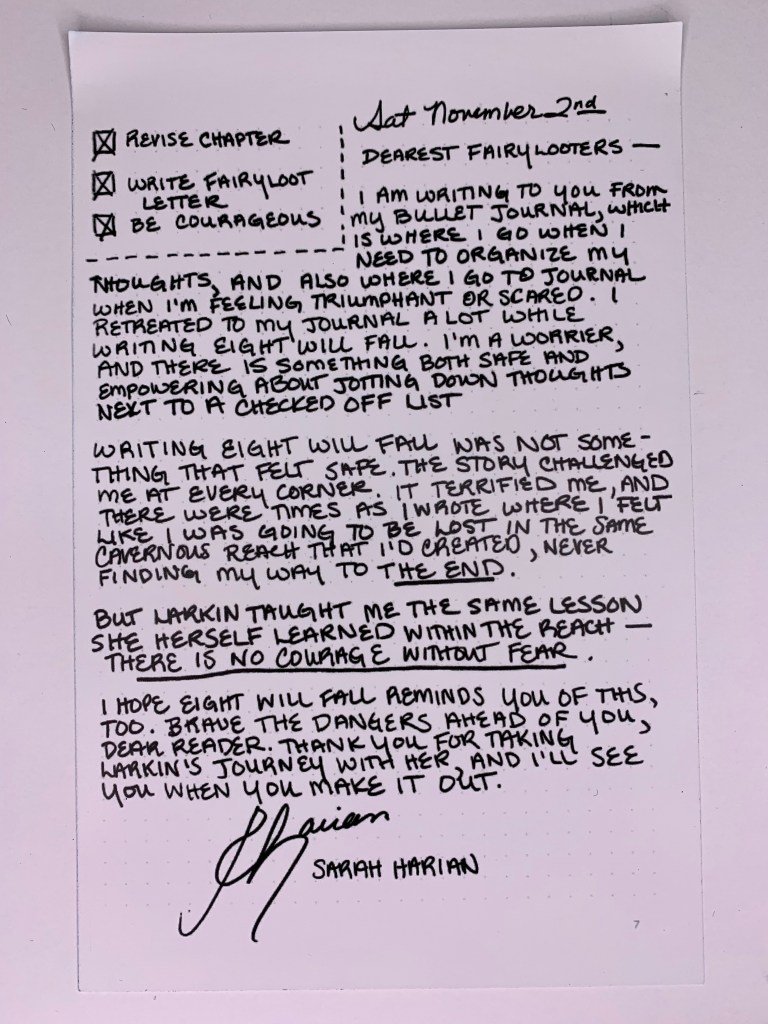 Sat November 2nd
☒ REVISE CHAPTER
☒ WRITE FAIRYLOOT
LETTER
☒ BE COURAGEOUS
DEAREST FAIRYLOOTERS —
I AM WRITING TO YOU FROM
MY BULLET JOURNAL, WHICH
IS WHERE I GO WHEN I
NEED TO ORGANIZE MY
THOUGHTS, AND ALSO WHERE I GO TO JOURNAL
WHEN I'M FEELING TRIUMPHANT OR SCARED. I
RETREATED TO MY JOURNAL A LOT WHILE
WRITING EIGHT WILL FALL. I'M A WORRIER,
AND THERE IS SOMETHING BOTH SAFE AND
EMPOWERING ABOUT JOTTING DOWN THOUGHTS
NEXT TO A CHECKED OFF LIST
WRITING EIGHT WILL FALL WAS NOT SOME-
THING THAT FELT SAFE. THE STORY CHALLENGED
ME AT EVERY CORNER. IT TERRIFIED ME, AND
THERE WERE TIMES AS I WROTE WHERE I FELT
LIKE I WAS GOING TO BE LOST IN THE SAME
CAVERNOUS REACH THAT I'D CREATED, NEVER
FINDING MY WAY TO THE END.
BUT LARKIN TAUGHT ME THE SAME LESSON
SHE HERSELF LEARNED WITHIN THE REACH —
THERE IS NO COURAGE WITHOUT FEAR.
I HOPE EIGHT WILL FALL REMINDS YOU OF THIS,
TOO. BRAVE THE DANGERS AHEAD OF YOU,
DEAR READER. THANK YOU FOR TAKING
LARKIN'S JOURNEY WITH HER, AND I'LL SEE
YOU WHEN YOU MAKE IT OUT.
SHarian
SARAH HARIAN
7